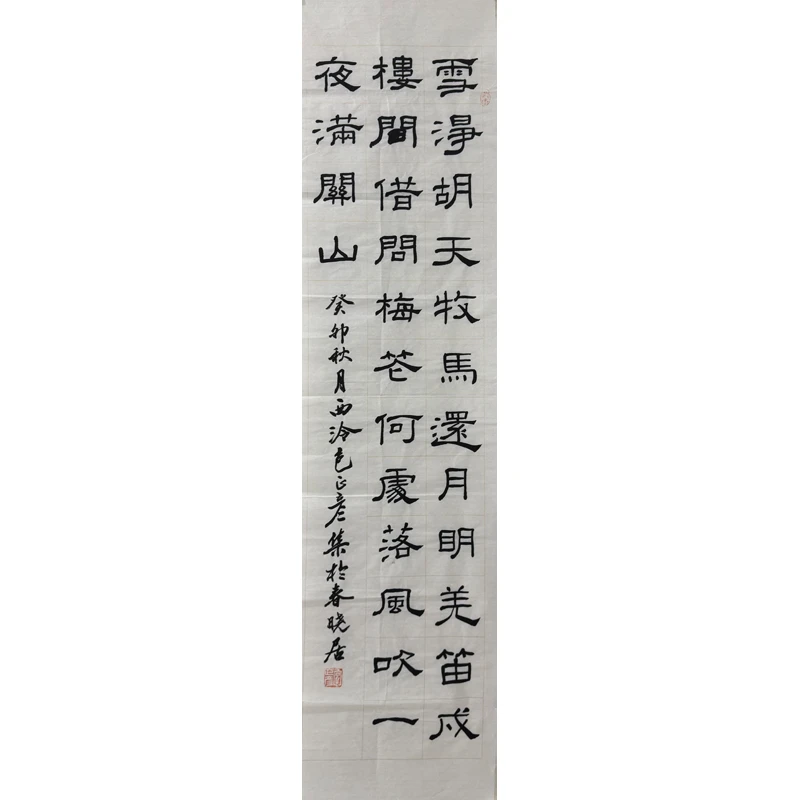 雪淨胡天牧馬還月明羌笛戍
樓間借問梅花何處落風吹一
夜滿關山
癸卯秋月西泠包正彦集於春曉居